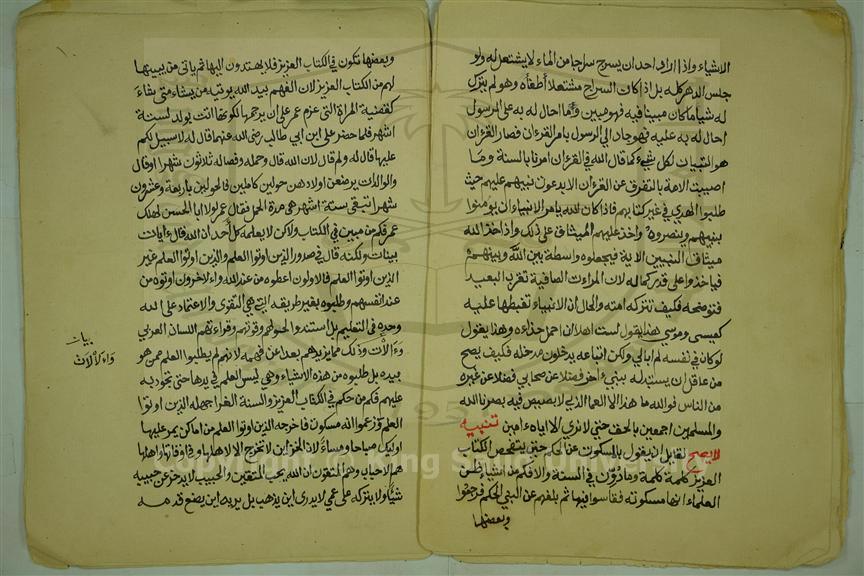 الاشياء واذا اراد احد ان يسرج سراجا من الماء لا يشتعل له ولو
جلس الدهر كله بل اذا كان السراج مشتعلا أطفأه وهو لم يترك
له شيا ما كان مبينا فيه فهو مبين وما احال له به على الرسول
احال له به عليه فهو جاء الي الرسول بامر القرءان فصار القرءان
هو التبيان لكل شيء كما قال الله في القرءان امرنا بالسنة وما
اصيبت الامة بالتفرق عن القرءان الا بدعوت نبيهم عليهم حيث
طلبوا الهدي في غير كتابهم فاذا كان الله يامر الانبياء ان يومنوا
بنبيهم وينصروه واخذ عليهم الميثاق على ذلك واذ اخذ الله
ميثاق النبيين الاية فيجعلوه واسطة بين الله وبينهم
فياخذوا على قدر كماله لان المراءت الصافية تقرب البعيد
فتوضحه فكيف تتركه امته والحال ان الانبياء تغبطها عليه
كعيسى وموسي هذا يقول لست اهلا ان احمل حذاءه وهذا يقول
لو كان في نفسه لم ابالي ولكن اتباعه يدخلون مدخله فكيف يصح
من عاقل ان يستدل به بنبي واخر فضلا عن صحابي فضلا عن غيره
من الناس فوالله ما هذا الا العما الذي لا بصيص فيه بصرنا الله
والمسلمين اجمعين بالحق حتي لا نري الا اياه ءامين تنبيه
لا يصح لقايل ان يقول بالسكوت عن الحكم حتى يتفحص الكتاب
العزيز كلمة كلمة وما دون في السنة والا فكم من اشياء ظن
العلماء انها مسكوته فقاسوا فيها ثم بلغهم عن النبي الحكم فرجعوا
وبعضها
وبعضها تكون في الكتاب العزيز فلا يهتدون اليها ثم ياتى من يبينها
لهم من الكتاب العزيز لان الفهم بيد الله يوتيه من يشاء متى يشاء
كقضية المراة التى عزم عمر على ان يرجمها لكونها اتت بولد لستة
اشهر فلما حضر على ابن ابي طالب رضى الله عنهما قال له لا سبيل لكم
عليها قال له ولم قال لان الله قال وحمله وفصاله ثلاثون شهرا وقال
والوالدات يرضعن اولادهن حولين كاملين فالحولين باربعة وعشرون
شهرا تبقى ستة اشهر هى مدة الحمل فقال عمر لولا ابا الحسن لهلك
عمر فكم من مبين في الكتاب ولاكن لا يعلمه كل أحد ان الله قال ءايات
بينات ولكنه قال في صدور الذين اوتوا العلم والذين اوتوا العلم غير
الذين اوتوا العلم فالاولون اعطوه من عند الله والاخرون اوتوه من
عند انفسهم وطلبوه بغير طريقه التي هى التقوى والاعتماد على الله
وحده فى التعليم بل استندوا لحولهم وقوتهم وقراءتهم اللسان العربي
وءالات وذلك مما يزيدهم بعدا عن فهمه لانهم لم يطلبوا العلم ممن هو
بيده بل طلبوه من هذه الاشياء وهى ليس العلم في يدها حتى تجود به
عليهم فكم من حكم في الكتاب العزيز والسنة الغرا جهله الذين اوتوا
العلم وزعموا انه مسكون فاخرجه الذين اوتوا العلم من اماكن يمر عليها
اوليك صباحا ومساء لان المخزاين لا تخرج الا لاهلها وفي اوقاتها واهلها
هم الاحباب وهم المتقون ان الله يحب المتقين والحبيب لا يدخر عن حبيبه
شيا ولا يتركه على عمي لا يدرى اين يذهب بل يريه اين يضع قدمه
بيات
وءالالات